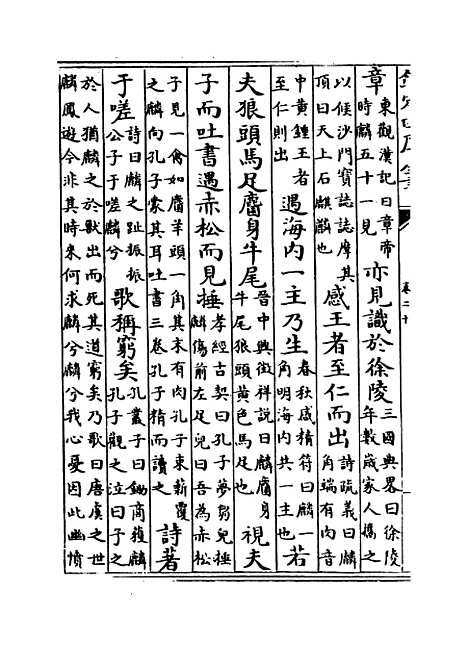 欽定四庫全書
卷二十
章東觀漢記曰章帝時麟五十一見亦見識於徐陵三國典畧曰徐陵年數嵗家人攜之
以候沙門寳誌誌摩其頂曰天上石麒麟也感王者至仁而出詩疏義曰麟角端有肉音
中黄鍾王者至仁則出遇海内一主乃生春秋感精符曰麟一角明海内共一主也若
夫狼頭馬足麕身牛尾晉中興徴祥説曰麟麕身牛尾狼頭黄色馬足也視夫
子而吐書遇赤松而見捶孝經古契曰孔子夢芻兒捶麟傷前左足兒曰吾為赤松
子見一禽如麕羊頭一角其末有肉孔子束薪覆之麟向孔子蒙其耳吐書三卷孔子精而讀之詩著
于嗟詩曰麟之趾振振公子于嗟麟兮歌稱窮矣孔叢子曰鋤商獲麟孔子觀之泣曰子之
於人猶麟之於獸出而死其道窮矣乃歌曰唐虞之世麟鳳遊今非其時來何求麟兮麟兮我心憂因此幽憤